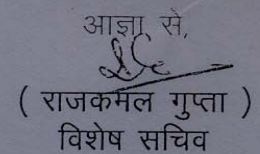 आज्ञा से,
( राजकमल गुप्ता )
विशेष सचिव